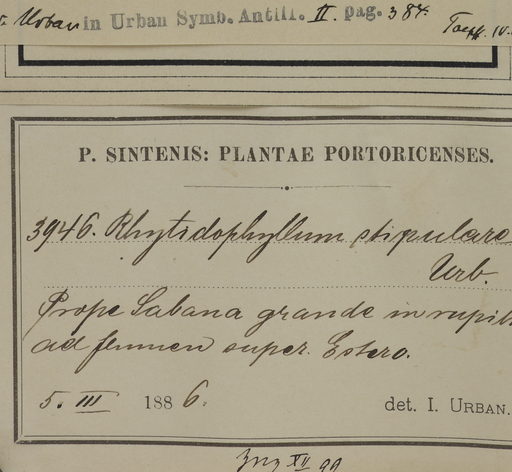 Urban in Urban Symb. Antill. II. pag. 384.
P. SINTENIS: PLANTAE PORTORICENSES.
3946. Rhytidophyllum stipulare
Urb.
Prope Sabana grande in rupib
ad flumen super. Estero.
5. III 1886.
det. I. URBAN.
XII 99